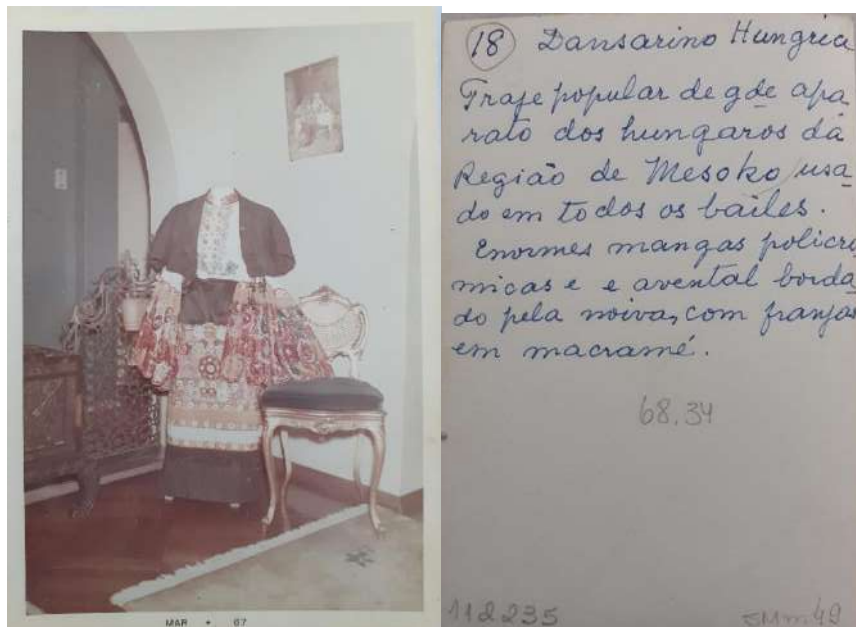 MAR • 67
18 Dansarino Hungria
Traje popular de gde apa
rato dos hungaros da
Região de Mesoko, usa
do em todos os bailes.
Enormes mangas policro
micas e e avental borda
do pela noiva, com franjas
em macramé.
68.34
112235
5Mm.49